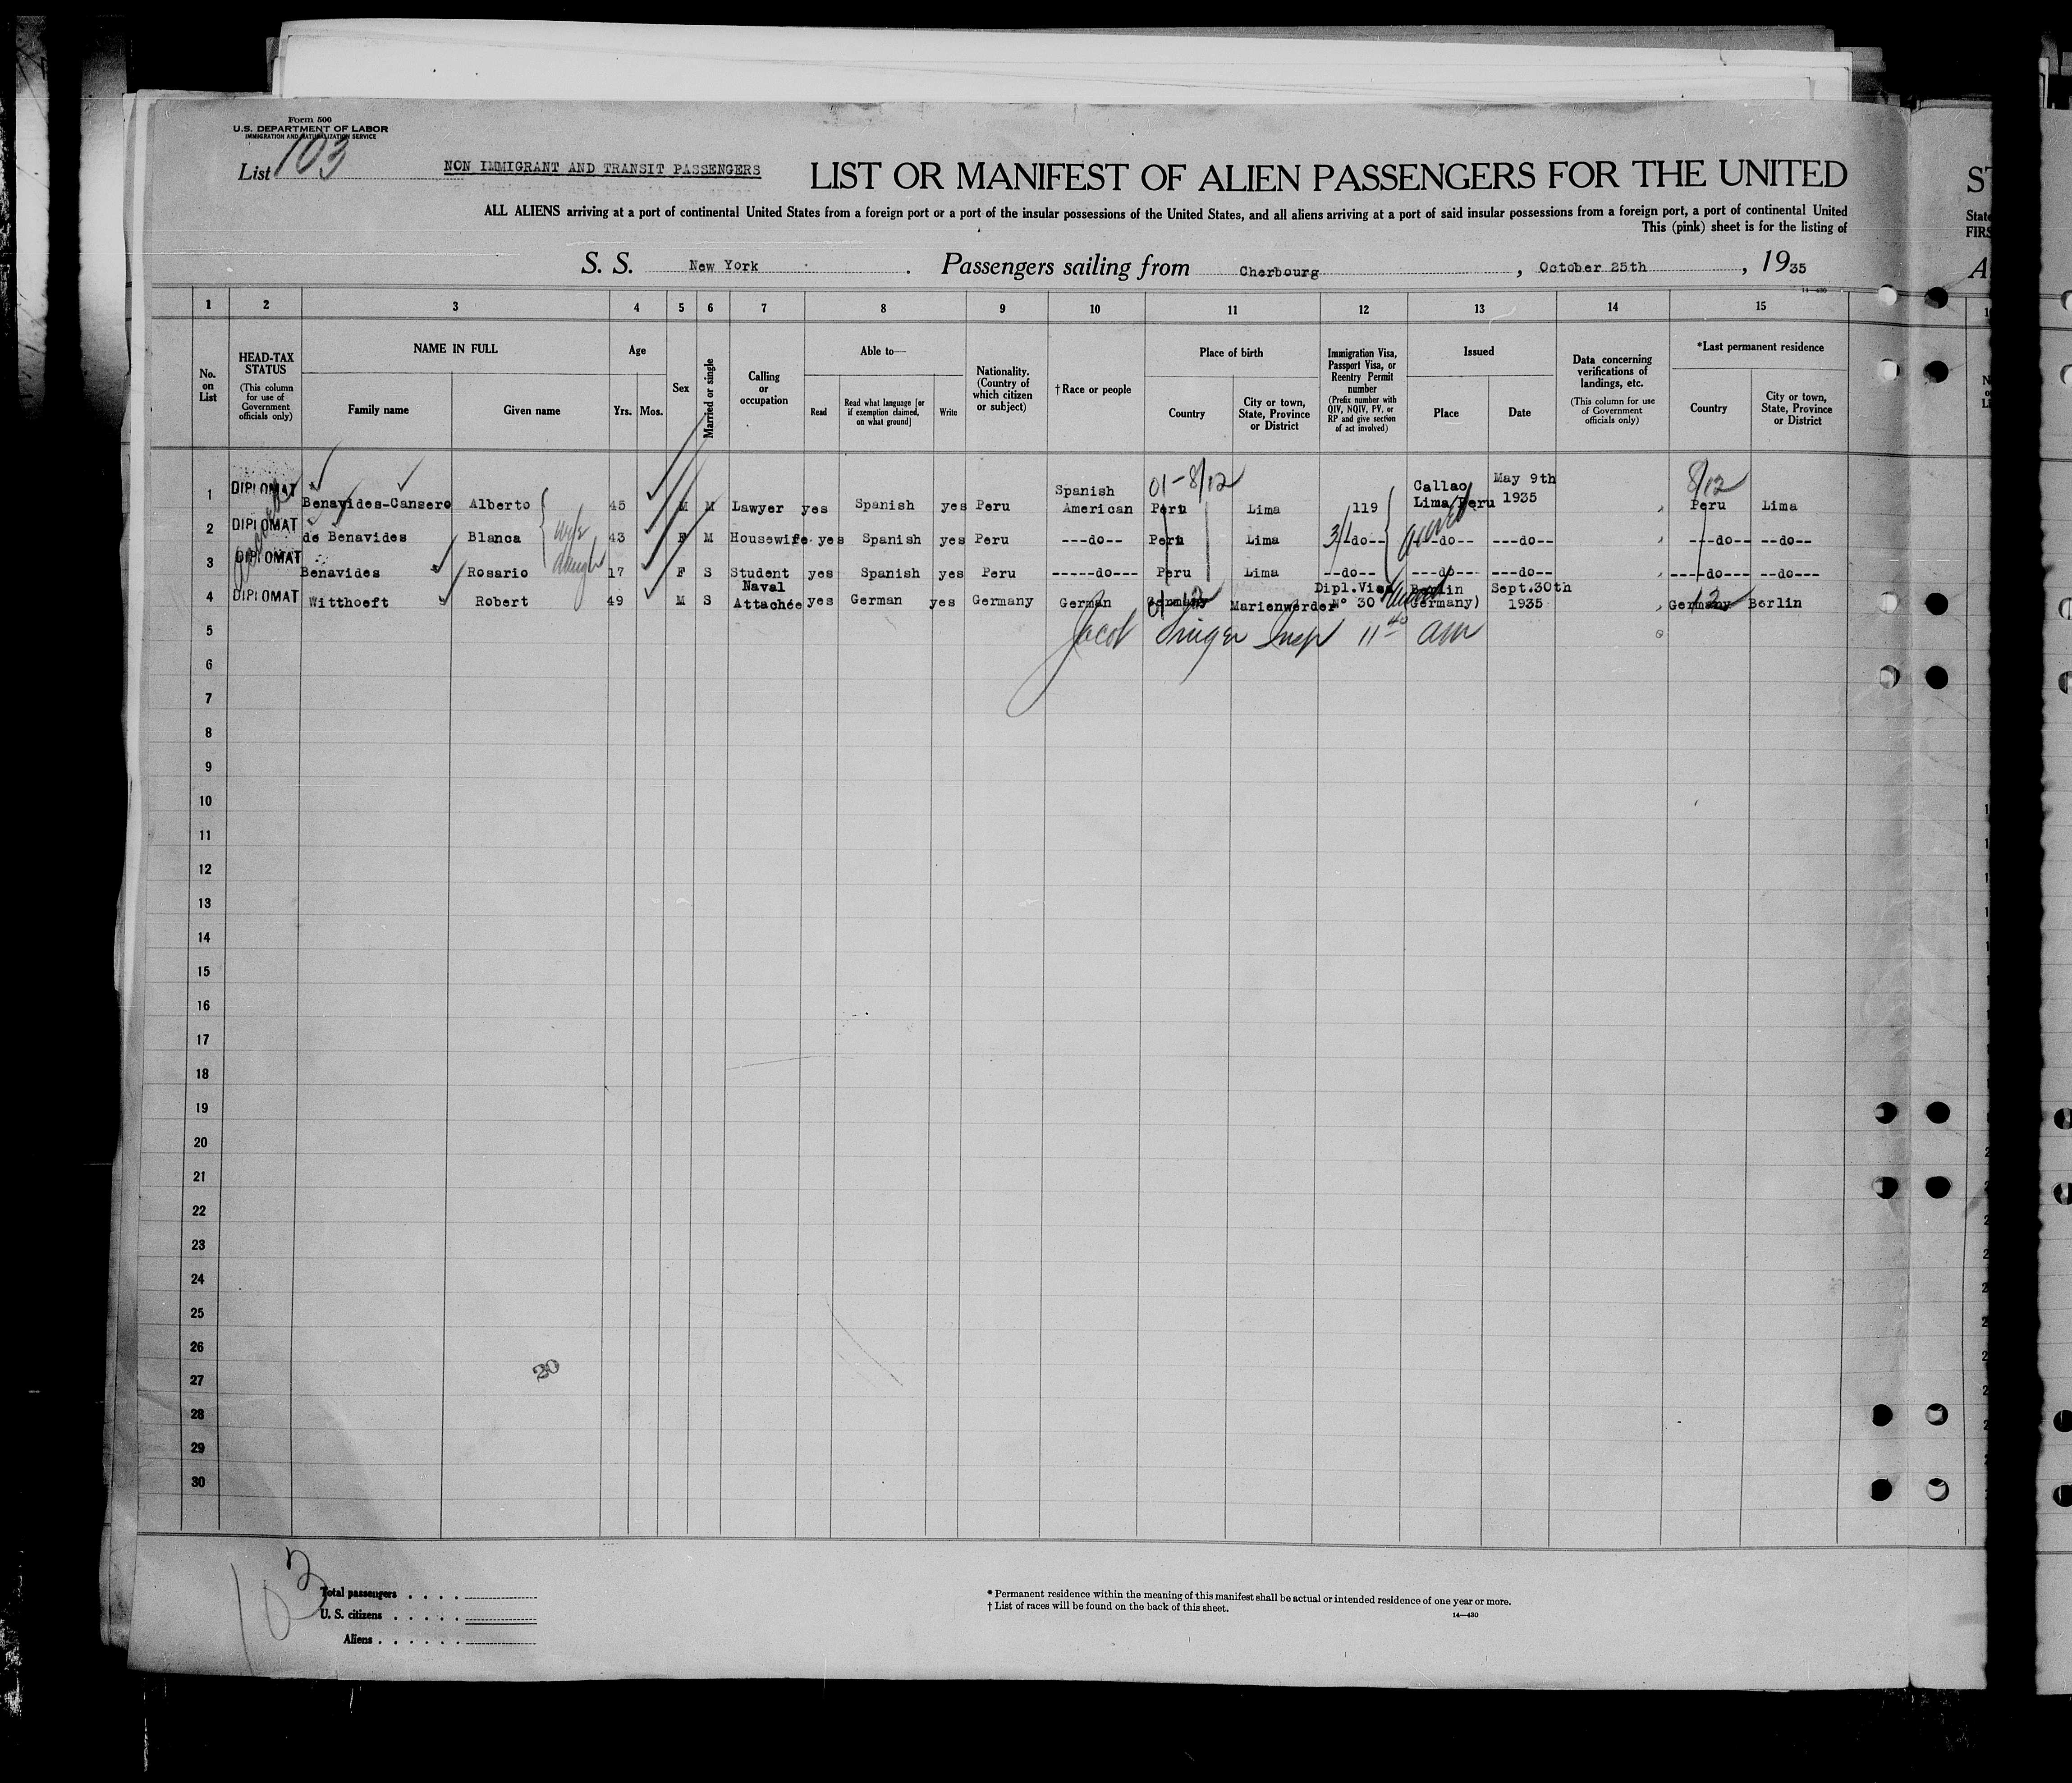 Form 500
U.S. DEPARTMENT OF LABOR
IMMIGRATION AND NATURALIZATION SERVICE
List 103
NON IMMIGRANT AND TRANSIT PASSENGERS
LIST OR MANIFEST OF ALIEN PASSENGERS FOR THE UNITED
ALL ALIENS arriving at a port of continental United States from a foreign port or a port of the insular possessions of the United States, and all aliens arriving at a port of said insular possessions from a foreign port, a port of continental United
This (pink) sheet is for the listing of
S. S. New York . Passengers sailing from Cherbourg , October 25th , 1935
14—430
1 2 3 4 5 6 7 8 9 10 11 12 13 14 15
No. on List
HEAD-TAX STATUS
(This column for use of Government officials only)
NAME IN FULL
Family name
Given name
Age
Yrs.
Mos.
Sex
Married or single
Calling or occupation
Able to—
Read
Read what language [or if exemption claimed, on what ground]
Write
Nationality. (Country of which citizen or subject)
†Race or people
Place of birth
Country
City or town, State, Province or District
Immigration Visa, Passport Visa, or Reentry Permit number
(Prefix number with QIV, NQIV, PV, or RP and give section of act involved)
Issued
Place
Date
Data concerning verifications of landings, etc.
(This column for use of Government officials only)
*Last permanent residence
Country
City or town, State, Province or District
01-8/12
8/12
1 DIPLOMAT Benavides-Cansero Alberto 45 M M Lawyer yes Spanish yes Peru Spanish American Peru Lima 119 Callao Lima/Peru May 9th 1935 Peru Lima
2 DIPLOMAT de Benavides Blanca wife 43 F M Housewife yes Spanish yes Peru ---do-- Peru Lima 3/1 --do-- ---do-- ---do-- ---do-- --do--
3 DIPLOMAT Benavides Rosario daugh 17 F S Student yes Spanish yes Peru -----do--- Peru Lima --do-- ---do-- ---do-- ----do--- --do---
4 DIPLOMAT Witthoeft Robert 49 M S Naval Attachée yes German yes Germany German Germany Marienwerder Dipl.Visa N° 30 Berlin (Germany) Sept.30th 1935 Germany Berlin
5 Jacob Singer Insp 11 40 am
6
7
8
9
10
11
12
13
14
15
16
17
18
19
20
21
22
23
24
25
26
27
28
29
30
20
103
Total passengers
U. S. citizens
Aliens
* Permanent residence within the meaning of this manifest shall be actual or intended residence of one year or more.
† List of races will be found on the back of this sheet.
14—430